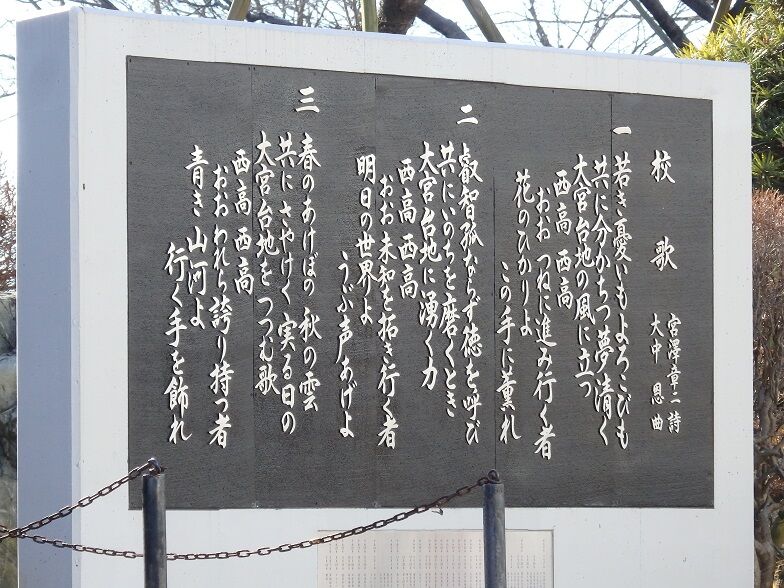 校歌
宮澤章二 詩
大中 恩 曲
一
若き憂いもよろこびも
共に分かちつ夢清く
大宮台地の風に立つ
西高 西高
おお つねに進み行く者
花のひかりよ
この手に薫れ
二
叡智孤ならず徳を呼び
共にいのちを磨くとき
大宮台地に湧く力
西高 西高
おお 未知を拓き行く者
明日の世界よ
うぶ声あげよ
三
春のあけぼの 秋の雲
共にさやけく 実る日の
大宮台地をつつむ歌
西高 西高
おおわれら誇り持つ者
青き山河よ
行く手を飾れ